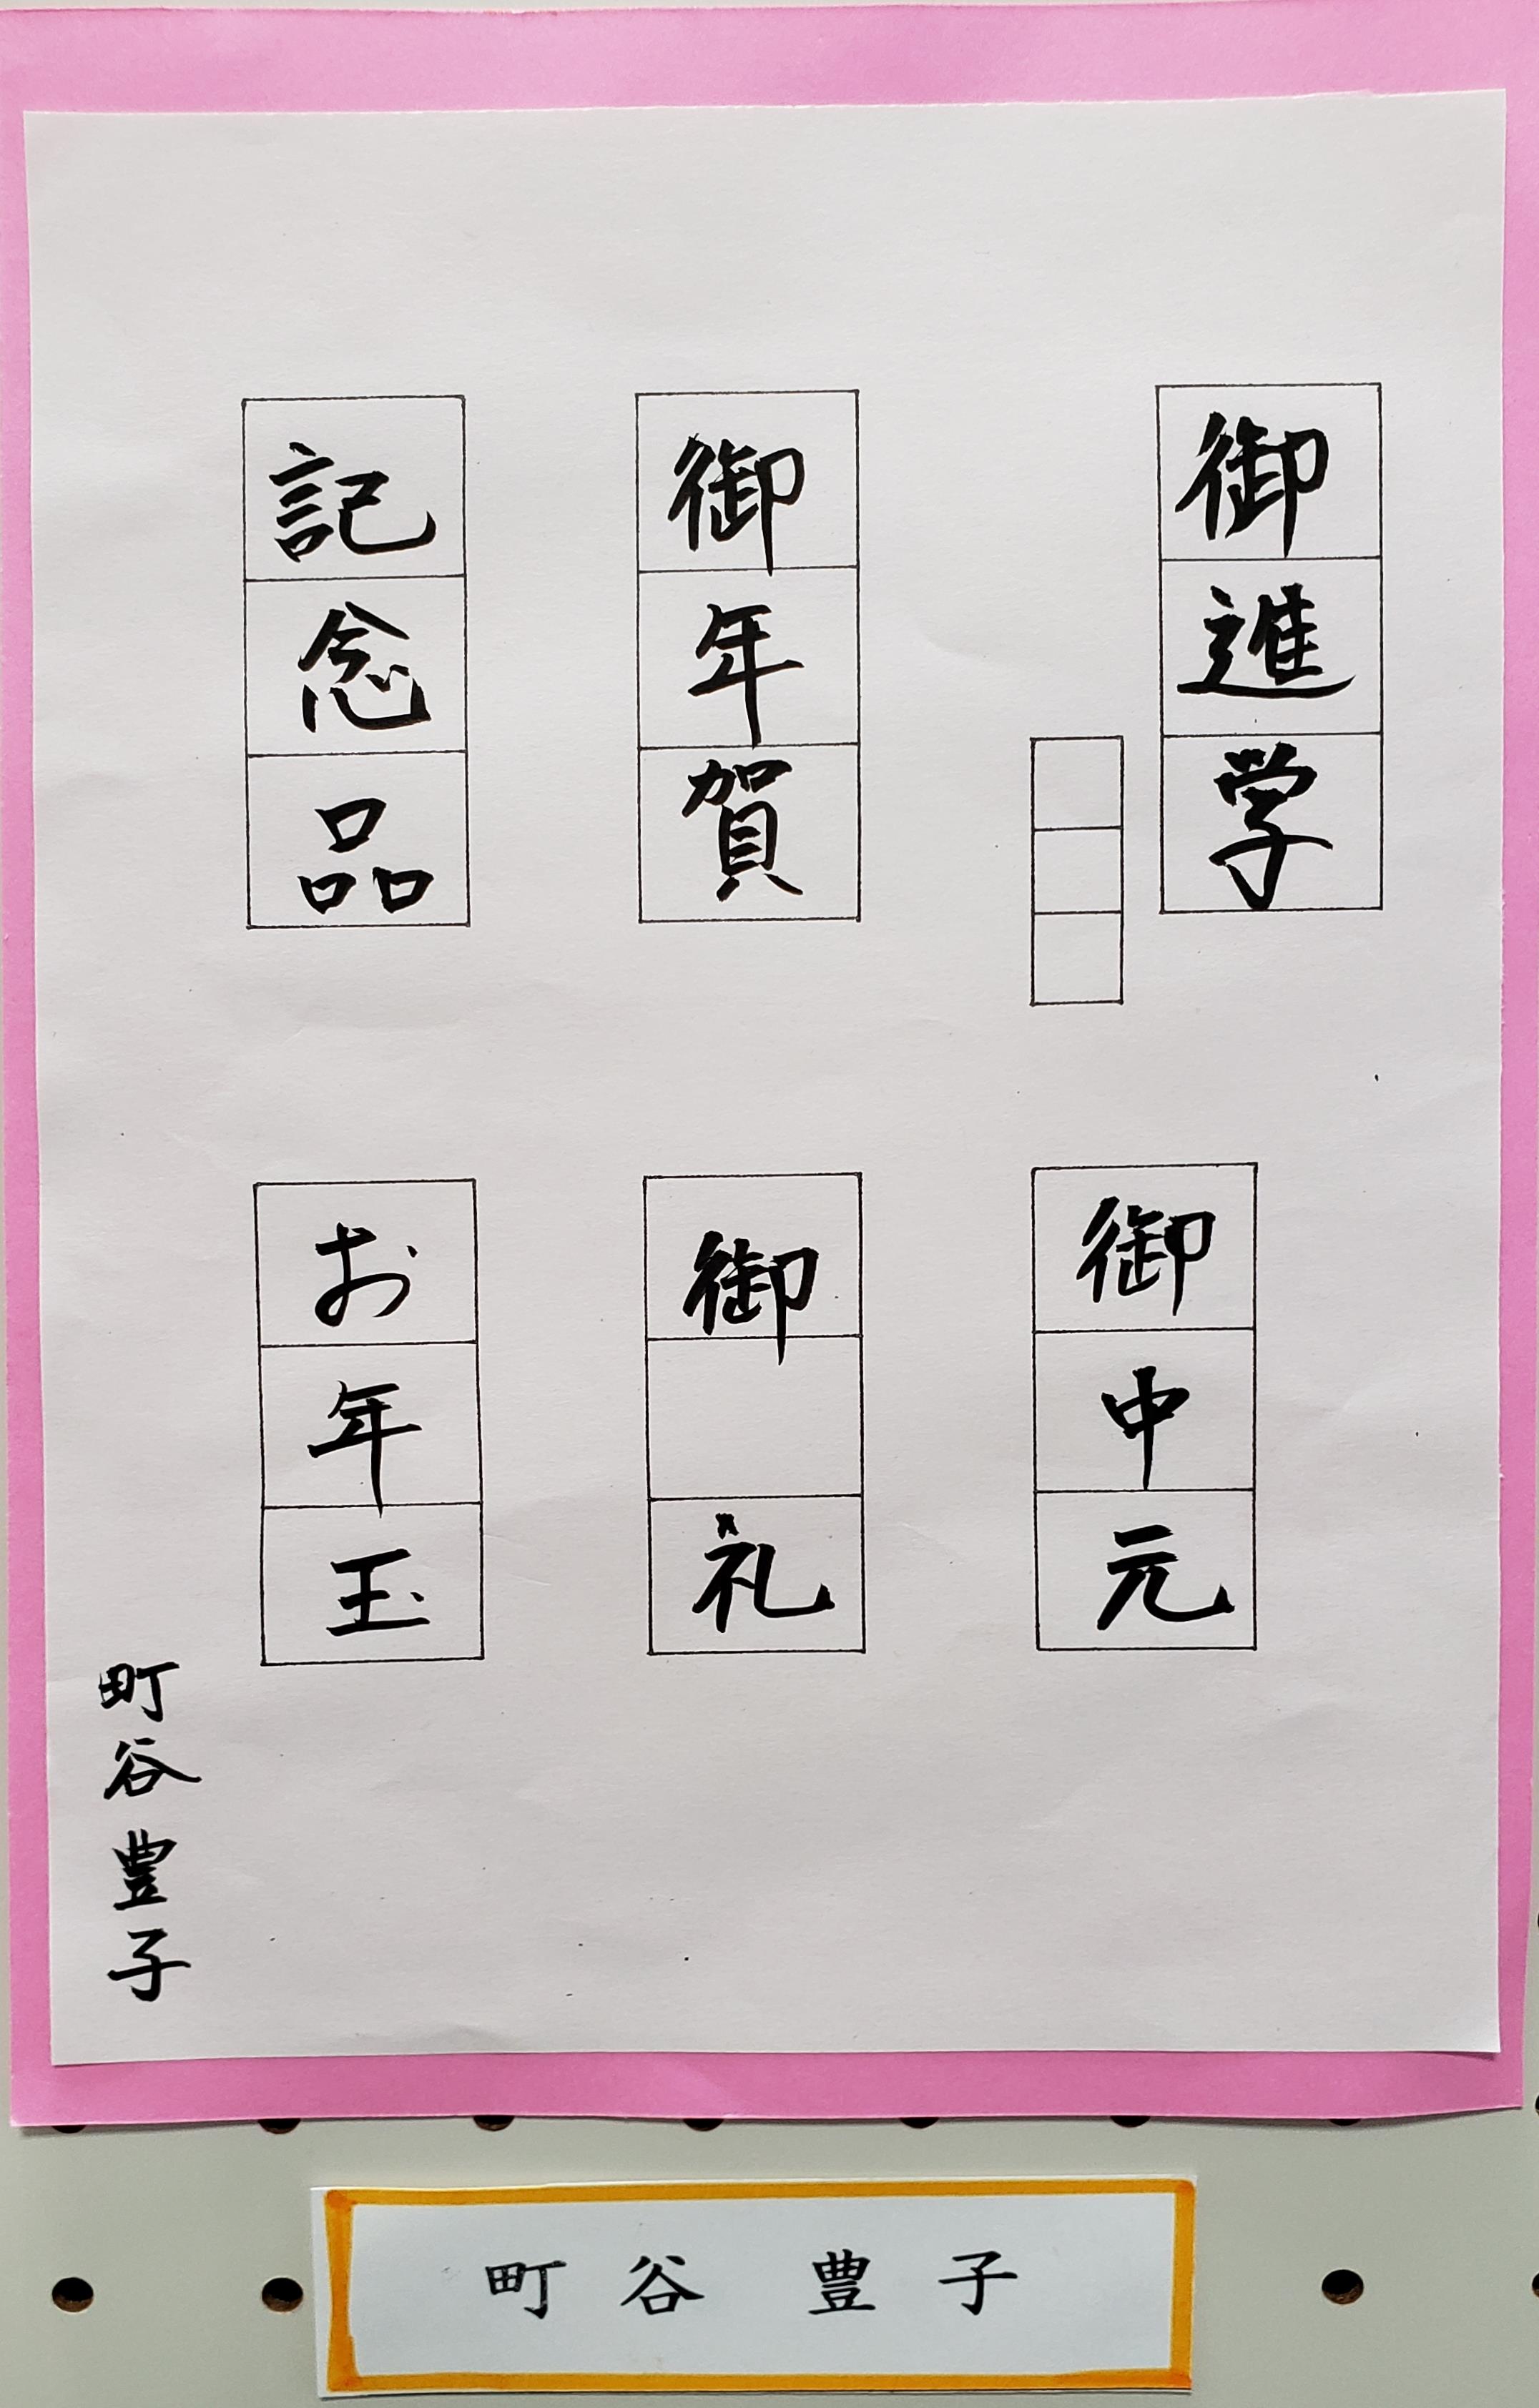 御進学
御年賀
記念品
御中元
御礼
お年玉
町谷豊子
町谷 豊子